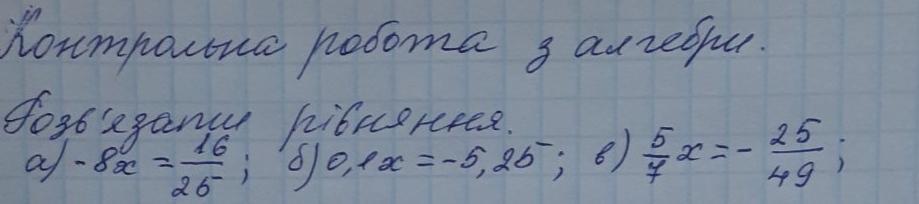 Контрольна робота з алгебри.
Розв'язати рівняння.
а) -8x = 16/25; б) 0,1x = -5,25; в) 5/7 x = - 25/49;